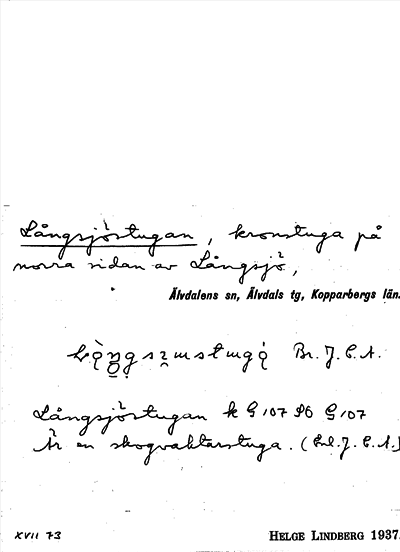 Långsjöstugan, kronstuga på
norra sidan av Långsjö,
Älvdalens sn, Älvdals tg, Kopparbergs län.
Br. J. E. A.
Långsjöstugan k G 107 SO G 107
Är en skogvaktarstuga. (Enl. J. E. A.)
XVII 73
HELGE LINDBERG 1937.